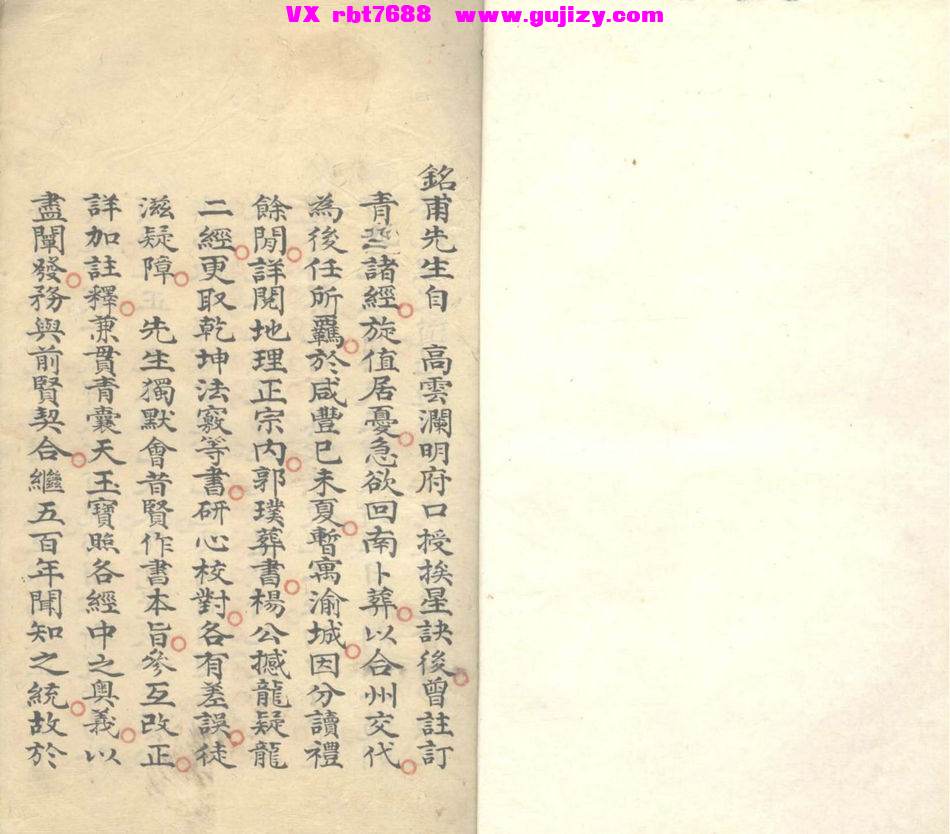 VX rbt7688 www.gujizy.com
銘甫先生自 高雲瀾明府口授挨星訣後曾註訂
青囊諸經旋值居憂急欲回南卜葬以合州交代
為後任所羈於咸豐己未夏暫寓渝城因分讀禮
餘閒詳閱地理正宗內郭璞葬書楊公撼龍疑龍
二經更取乾坤法竅等書研心校對各有差誤徒
滋疑障 先生獨默會昔賢作書本旨參互改正
詳加註釋兼貫青囊天玉寶照各經中之奧義以
盡闡發務與前賢契合繼五百年聞知之統故於